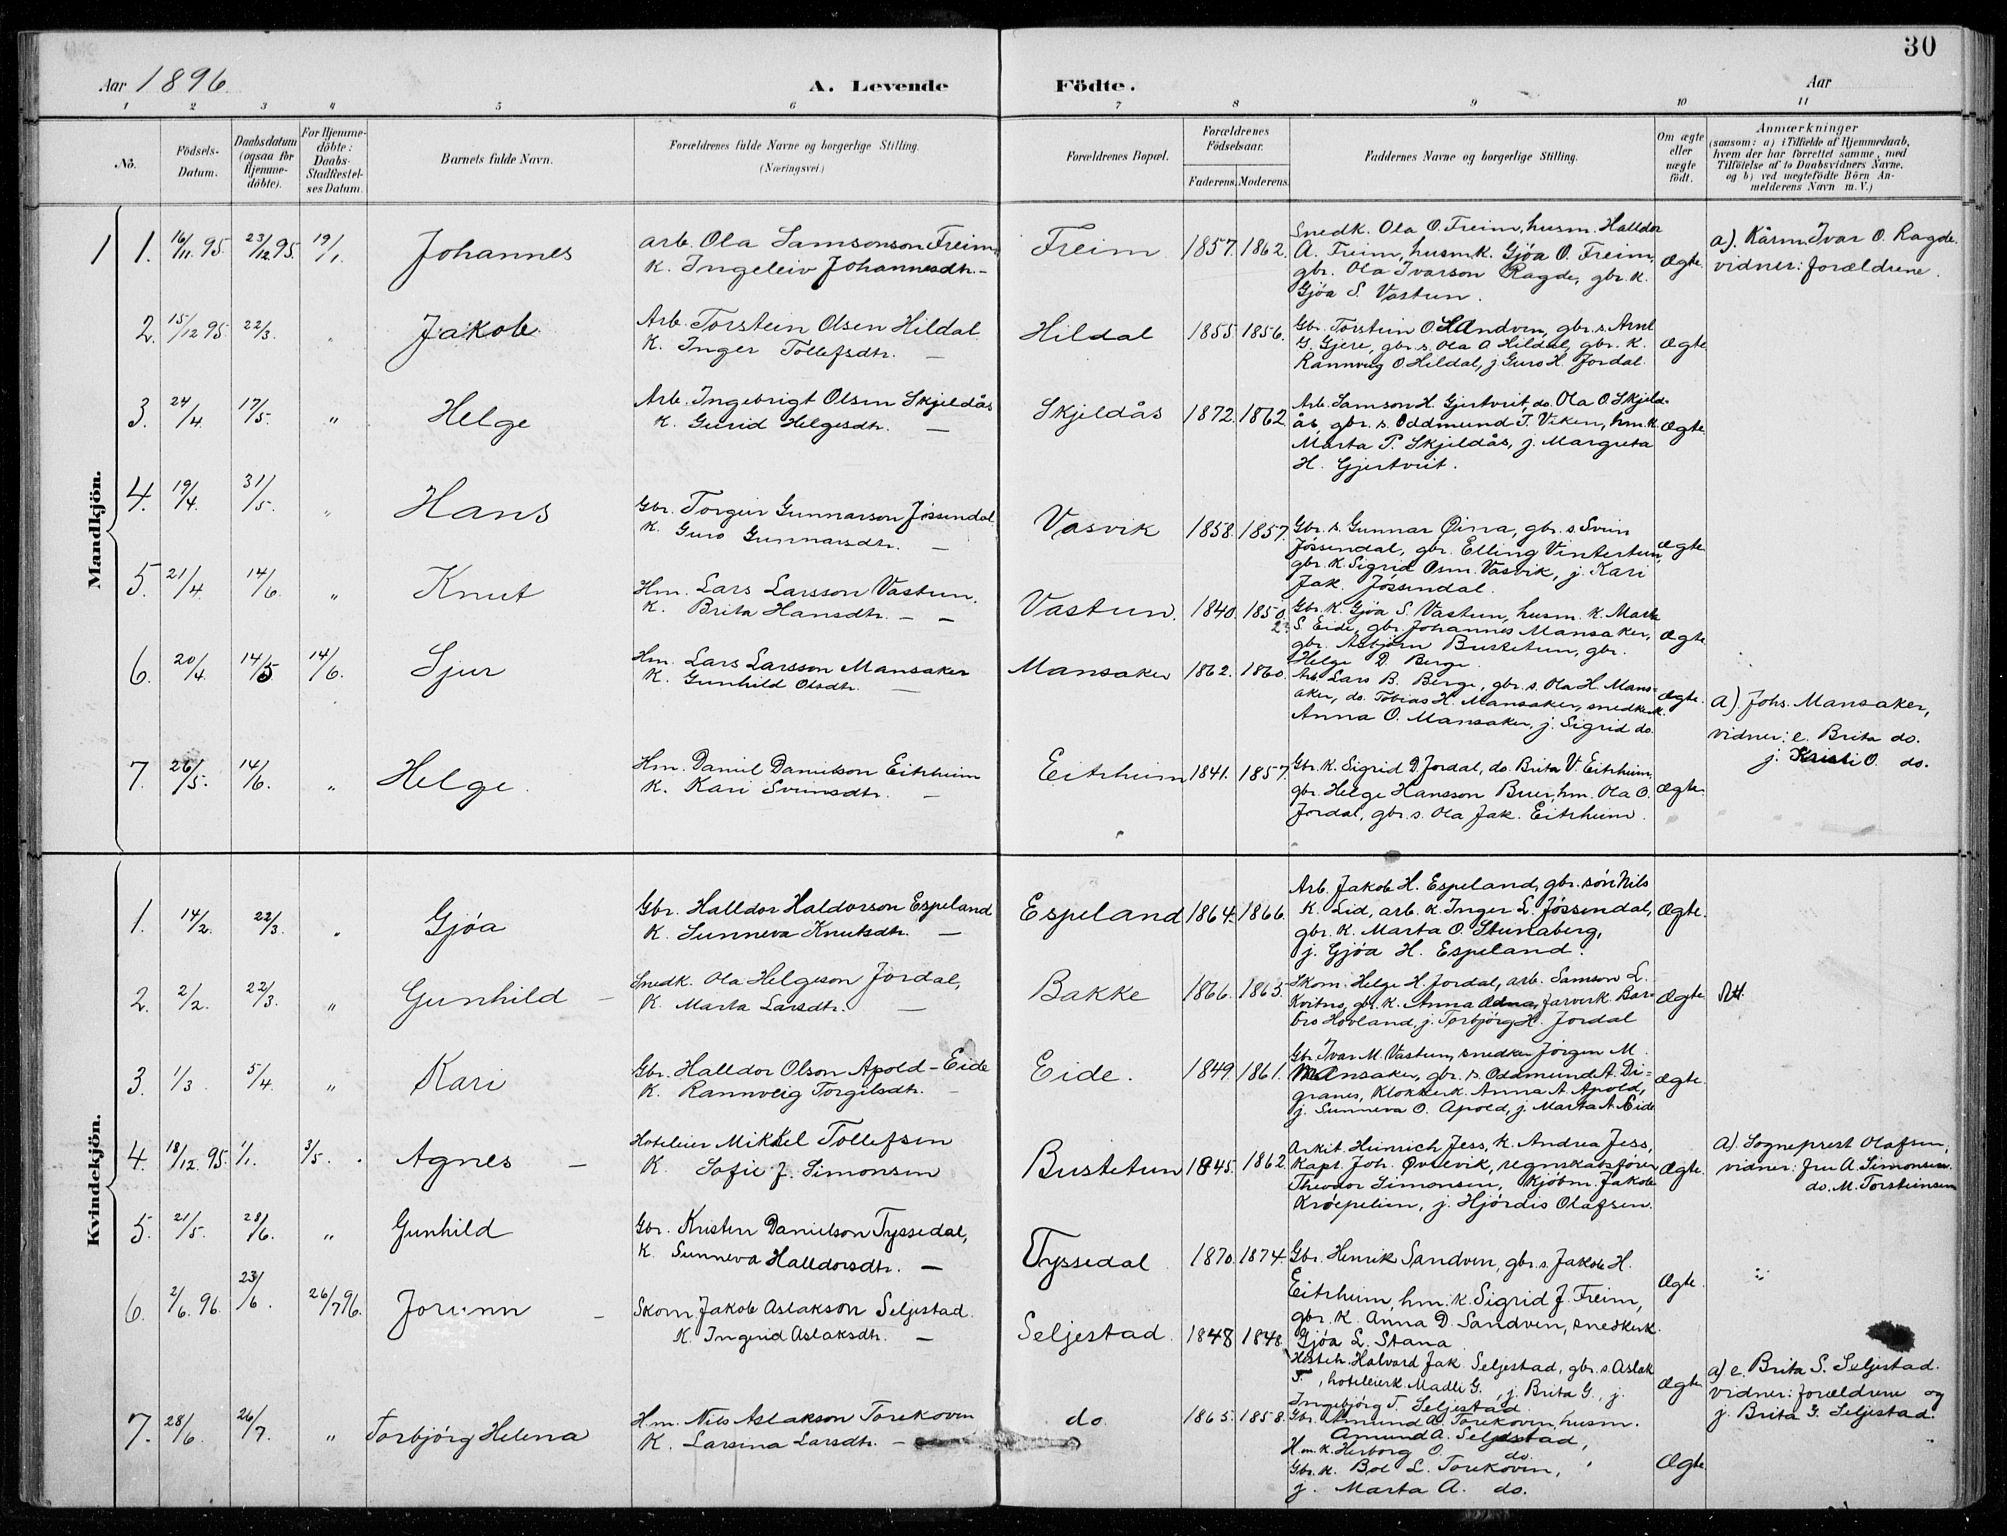 30
Aar 1896. A. Levende Födte. Aar
1 2 3 4 5 6 7 8 9 10 11
No. Födsels-Datum. Daabsdatum (ogsaa for Hjemme-döbte). For Hjemme-döbte: Daabs-Stadfæstel-ses Datum. Barnets fulde Navn. Forældrenes fulde Navne og borgerlige Stilling. (Næringsvei) Forældrenes Bopæl. Forældrenes Födselsaar. Faderens. Moderens. Faddernes Navne og borgerlige Stilling. Om ægte eller uægte födt. Anmærkninger (saasom: a) i Tilfælde af Hjemmedaab, hvem der har forrettet samme, med Tilföielse af to Daabsvidners Navne. og b) ved uægtefödte Börn An-melderens Navn m. V.)
Mandkjön.
1 1. 16/11 95. 23/12 95. 19/1. Johannes
arb. Ola Samsonson Freim
K. Ingeleiv Johannesdtr. —
Freim 1857. 1862.
Snedk. Ola O. Freim, husm. Halldor
A. Freim, husmk. Gjøa O. Freim,
gbr. Ola Ivarson Ragde, gbr. K.
Gjøa S. Vastun.
Ægte.
a). Kårm. Ivar O. Ragde.
vidner: forældrene.
2. 15/12 95. 22/3. „ Jakob
Arb. Torstein Olsen Hildal
K. Inger Tollefsdtr. —
Hildal 1855. 1856.
Gbr. Torstein O. Sandven, gbr. s. Arne
G. Gjere, gbr. s. Ola A Hildal, gbr. K.
Rannveig O Hildal, j Guro H. Jordal.
Ægte
3. 24/4. 17/5. „ Helge
Arb. Ingebrigt Olsen Skjeldås
K. Gurid Helgesdtr. —
Skjeldås 1872. 1862.
Arb. Samson H. Gjertveit, do. Ola O. Skjeld-
ås, gbr. s. Oddmund T. Viken, hm. K.
Marta P. Skjeldås, j. Margreta
H. Gjertveit.
Ægte.
4. 19/4. 31/5. „ Hans
Gbr. Torgeir Gunnarson Jøssendal.
K. Guro Gunnarsdtr. —
Vasvik 1858. 1857.
Gbr. s. Gunnar Øina, gbr. s Svein
Jøssendal, gbr. Elling Vintertun,
gbr. K. Sigrid Osm. Vasvik, j. Kari
Jak. Jøssendal.
Ægte
5. 21/4. 14/6. „ Knut
Hm. Lars Larsson Vastun.
K. Brita Hansdtr. — —
Vastun. 1840. 1850.
Gbr. K. Gjøa S. Vastun, husm. K. Marta
S. Eide, gbr. Johannes Mansaker,
gbr. Asbjørn Bustetun, gbr.
Helge D. Berge.
Ægte
6. 20/4. 14/5 14/6. Sjur
Hm. Lars Larsson Mansaker
K. Gunhild Olsdtr. —
Mansaker 1862. 1860.
Arb. Lars B. Berge, gbr. s. Ola H. Mans-
aker, do. Tobias H. Mansaker, snedkerk.
Anna O. Mansaker, j. Sigrid do.
Ægte.
a). Johs. Mansaker,
vidner: e. Brita do.
j. Kristi O. do.
7. 26/5. 14/6. „ Helge.
Hm. Daniel Danielson Eitrheim
K. Kari Sveinsdtr. —
Eitrheim 1841. 1857.
Gbr. K. Sigrid D. Jordal, do. Brita V. Eitrheim,
gbr. Helge Hansson Buer, hm. Ola O.
Jordal, gbr. s. Ola Jak. Eitrheim.
Ægte.
Kvindekjön.
1. 14/2. 22/3. „ Gjøa
Gbr. Halldor Haldorson Espeland
K. Sunneva Knutsdtr. —
Espeland 1864. 1866.
Arb. Jakob H. Espeland, gbr. søn Nils
K. Lid, arb. K. Inger L. Jøssendal,
gbr. K. Marta O. Stunaberg,
j. Gjøa H. Espeland.
Ægte.
2. 2/2. 22/3. „ Gunhild —
Snedk. Ola Helgeson Jordal,
K. Marta Larsdtr. —
Bakke 1866. 1863.
Skom. Helge H. Jordal, arb. Samson L.
Kvitno, gbr. K. Anna Odna, farverk. Bar-
bro Hovland, j. Torbjørg H. Jordal
Ægte.
3. 1/3. 5/4. „ Kari
Gbr. Halldor Olson Apold - Eide
K. Rannveig Torgilsdtr. —
Eide. 1849. 1861.
Gbr. Ivar M. Vastun, snedker Jørgen M.
Mansaker, gbr. s. Oddmund A. Di-
granes, Klokkerk. Anna A. Apold,
j. Sunneva O. Apold, j. Marta A. Eide
Ægte.
4. 18/12 95. 1/1. 3/5. Agnes —
Hoteleier Mikkel Tollefsen
K. Sofie J. Simonsen
Bustetun 1845. 1862
Arkit. Heinrich Jess, K. Andrea Jess,
Kapt. Joh. Øvrevik, regnskabsfører
Theodor Simonsen, Kjøbm. Jakob
Krøepelien, j. Hjørdis Olafsen.
Ægte.
a). Sogneprest Olafsen,
vidner: fru A. Simonsen
do. M. Torsteinsen
5. 21/5. 28/6. „ Gunhild
Gbr. Kristen Danielson Tyssedal,
K. Sunneva Halldorsdtr. —
Tyssedal 1870. 1874.
Gbr. Henrik Sandven, gbr. s. Jakob H.
Eitrheim, hm. K. Sigrid J. Freim,
gbr. K. Anna D. Sandven, snedkerk.
Gjøa L. Stana
Ægte.
6. 2/6. 96. 23/6. 26/7 96. Jorunn —
Skom. Jakob Aslakson Seljestad.
K. Ingerid Aslaksdtr. —
Seljestad. 1848 1848.
Halvard Jak. Seljestad, gbr. s. Aslak
T. , hoteleierk. Madli G. , j. Brita G., j.
Ingebjørg T. Seljestad.
Ægte
a) e. Brita S. Seljestad.
vidner: forældrene og
j. Brita G. Seljestad.
7. 28/6. 26/7. „ Torbjörg Helena
Hm. Nils Aslakson Torekoven
K. Larsina Larsdtr. —
do. 1865. 1858.
Gbr. Amund A. Torekoven, husm.
Amund A. Seljestad,
Hm. K. Herborg O. do. ,
Gbr. K. Bol L. Torekoven,
j. Marta A. do.
Ægte